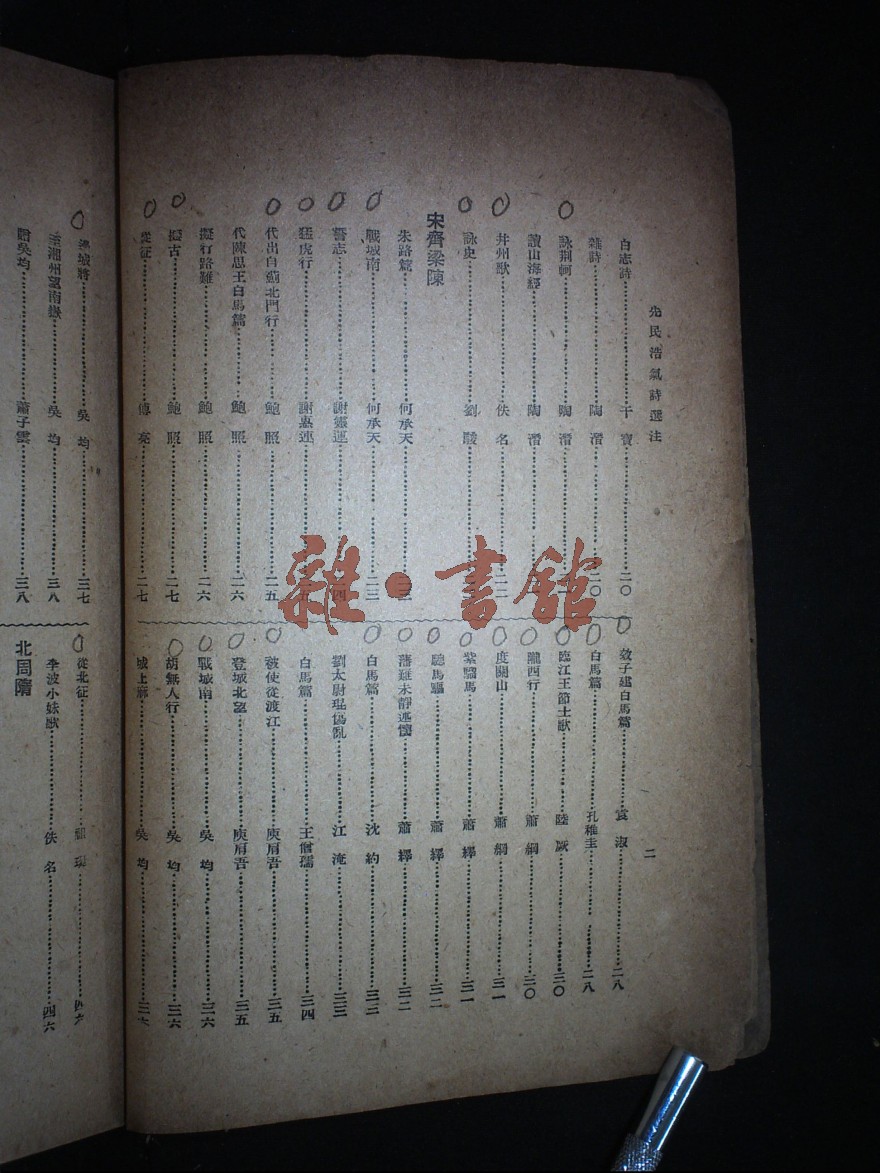 先民浩氣詩選注
二
白志詩 干寶 二〇
雜詩 陶潛 二〇
詠荆軻 陶潛
讀山海經 陶潛
并州歌 佚名 二二
詠史 劉駿
宋齊梁陳
朱路篇 何承天
戰城南 何承天 二三
謝靈運
猛虎行 謝惠連
代出自薊北門行 鮑照 二五
代陳思王白馬篇 鮑照 二六
擬行路難 鮑照 二六
擬古 鮑照 二七
從征 傅亮 二七
效子建白馬篇 袁淑 二八
白馬篇 孔稚圭 二八
臨江王節士歌 陸厥 三〇
隴西行 蕭綱 三〇
度關山 蕭綱 三一
紫騮馬 蕭繹 三一
驄馬驅 蕭繹 三二
藩難未靜述懷 蕭繹 三二
白馬篇 沈約 三三
劉太尉琨傷亂 江淹 三三
白馬篇 王僧孺 三四
被使從渡江 庾肩吾 三五
登城北望 庾肩吾 三五
戰城南 吳均 三六
胡無人行 吳均 三六
城上麻 吳均 三六
邊城將 吳均 三七
至湘州望南嶽 吳均 三八
贈吳均 蕭子雲 三八
從北征 四六
李波小妹歌 佚名 四六
北周隋
雜·書館